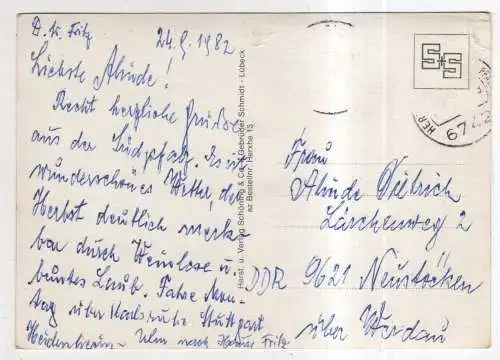 D. tr. Fritz
24.9.1982
Liebste Alinde!
Recht herzliche Grüße
aus der Südpfalz. Es ist
wunderschönes Wetter, der
Herbst deutlich merk-
bar durch Weinlese u.
buntes Laub. Fahre Mon-
tag über Karlsruhe Stuttgart
Heidenheim - Ulm nach Hause Fritz
Herst. u. Verlag Schöning & Co + Gebrüder Schmidt - Lübeck
az Bestellnr. Herxhe 15
S+S
HER
67
Frau
Alinde Dietrich
Lärchenweg 2
DDR 9621 Neustöcken
über Werdau